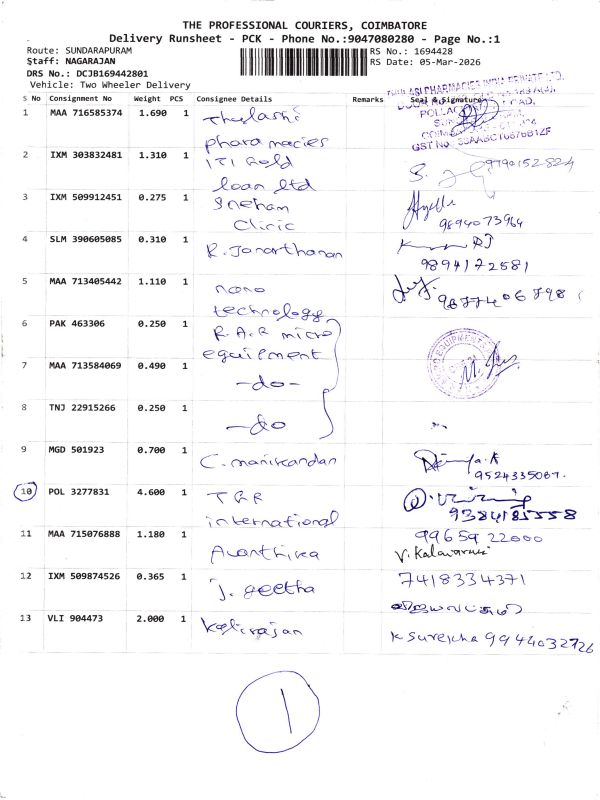 THE PROFESSIONAL COURIERS, COIMBATORE
Delivery Runsheet - PCK - Phone No.:9047080280 - Page No.:1
Route: SUNDARAPURAM RS No.: 1694428
Staff: NAGARAJAN RS Date: 05-Mar-2026
DRS No.: DCJB169442801
Vehicle: Two Wheeler Delivery
S No Consignment No Weight PCS Consignee Details Remarks Seal & Signature
1 MAA 716585374 1.690 1 Thulashi
pharamacies
2 IXM 303832481 1.310 1 ITI Gold
loan ltd
9790152824
3 IXM 509912451 0.275 1 Sneham
Clinic
9894073964
4 SLM 390605085 0.310 1 R. Janarthanan
9894172581
5 MAA 713405442 1.110 1 nano
technology
6 PAK 463306 0.250 1 R.A.R micro
equipment
7 MAA 713584069 0.490 1 -do-
8 TNJ 22915266 0.250 1 -do
9 MGD 501923 0.700 1 C. manikandan
9524335087.
10 POL 3277831 4.600 1 TGR
international
9384185558
11 MAA 715076888 1.180 1 Avanthika
9965922000
V. Kalavarani
12 IXM 509874526 0.365 1 J. geetha 7418334371
13 VLI 904473 2.000 1 Kalirajan
K Surekha 9944032726
1